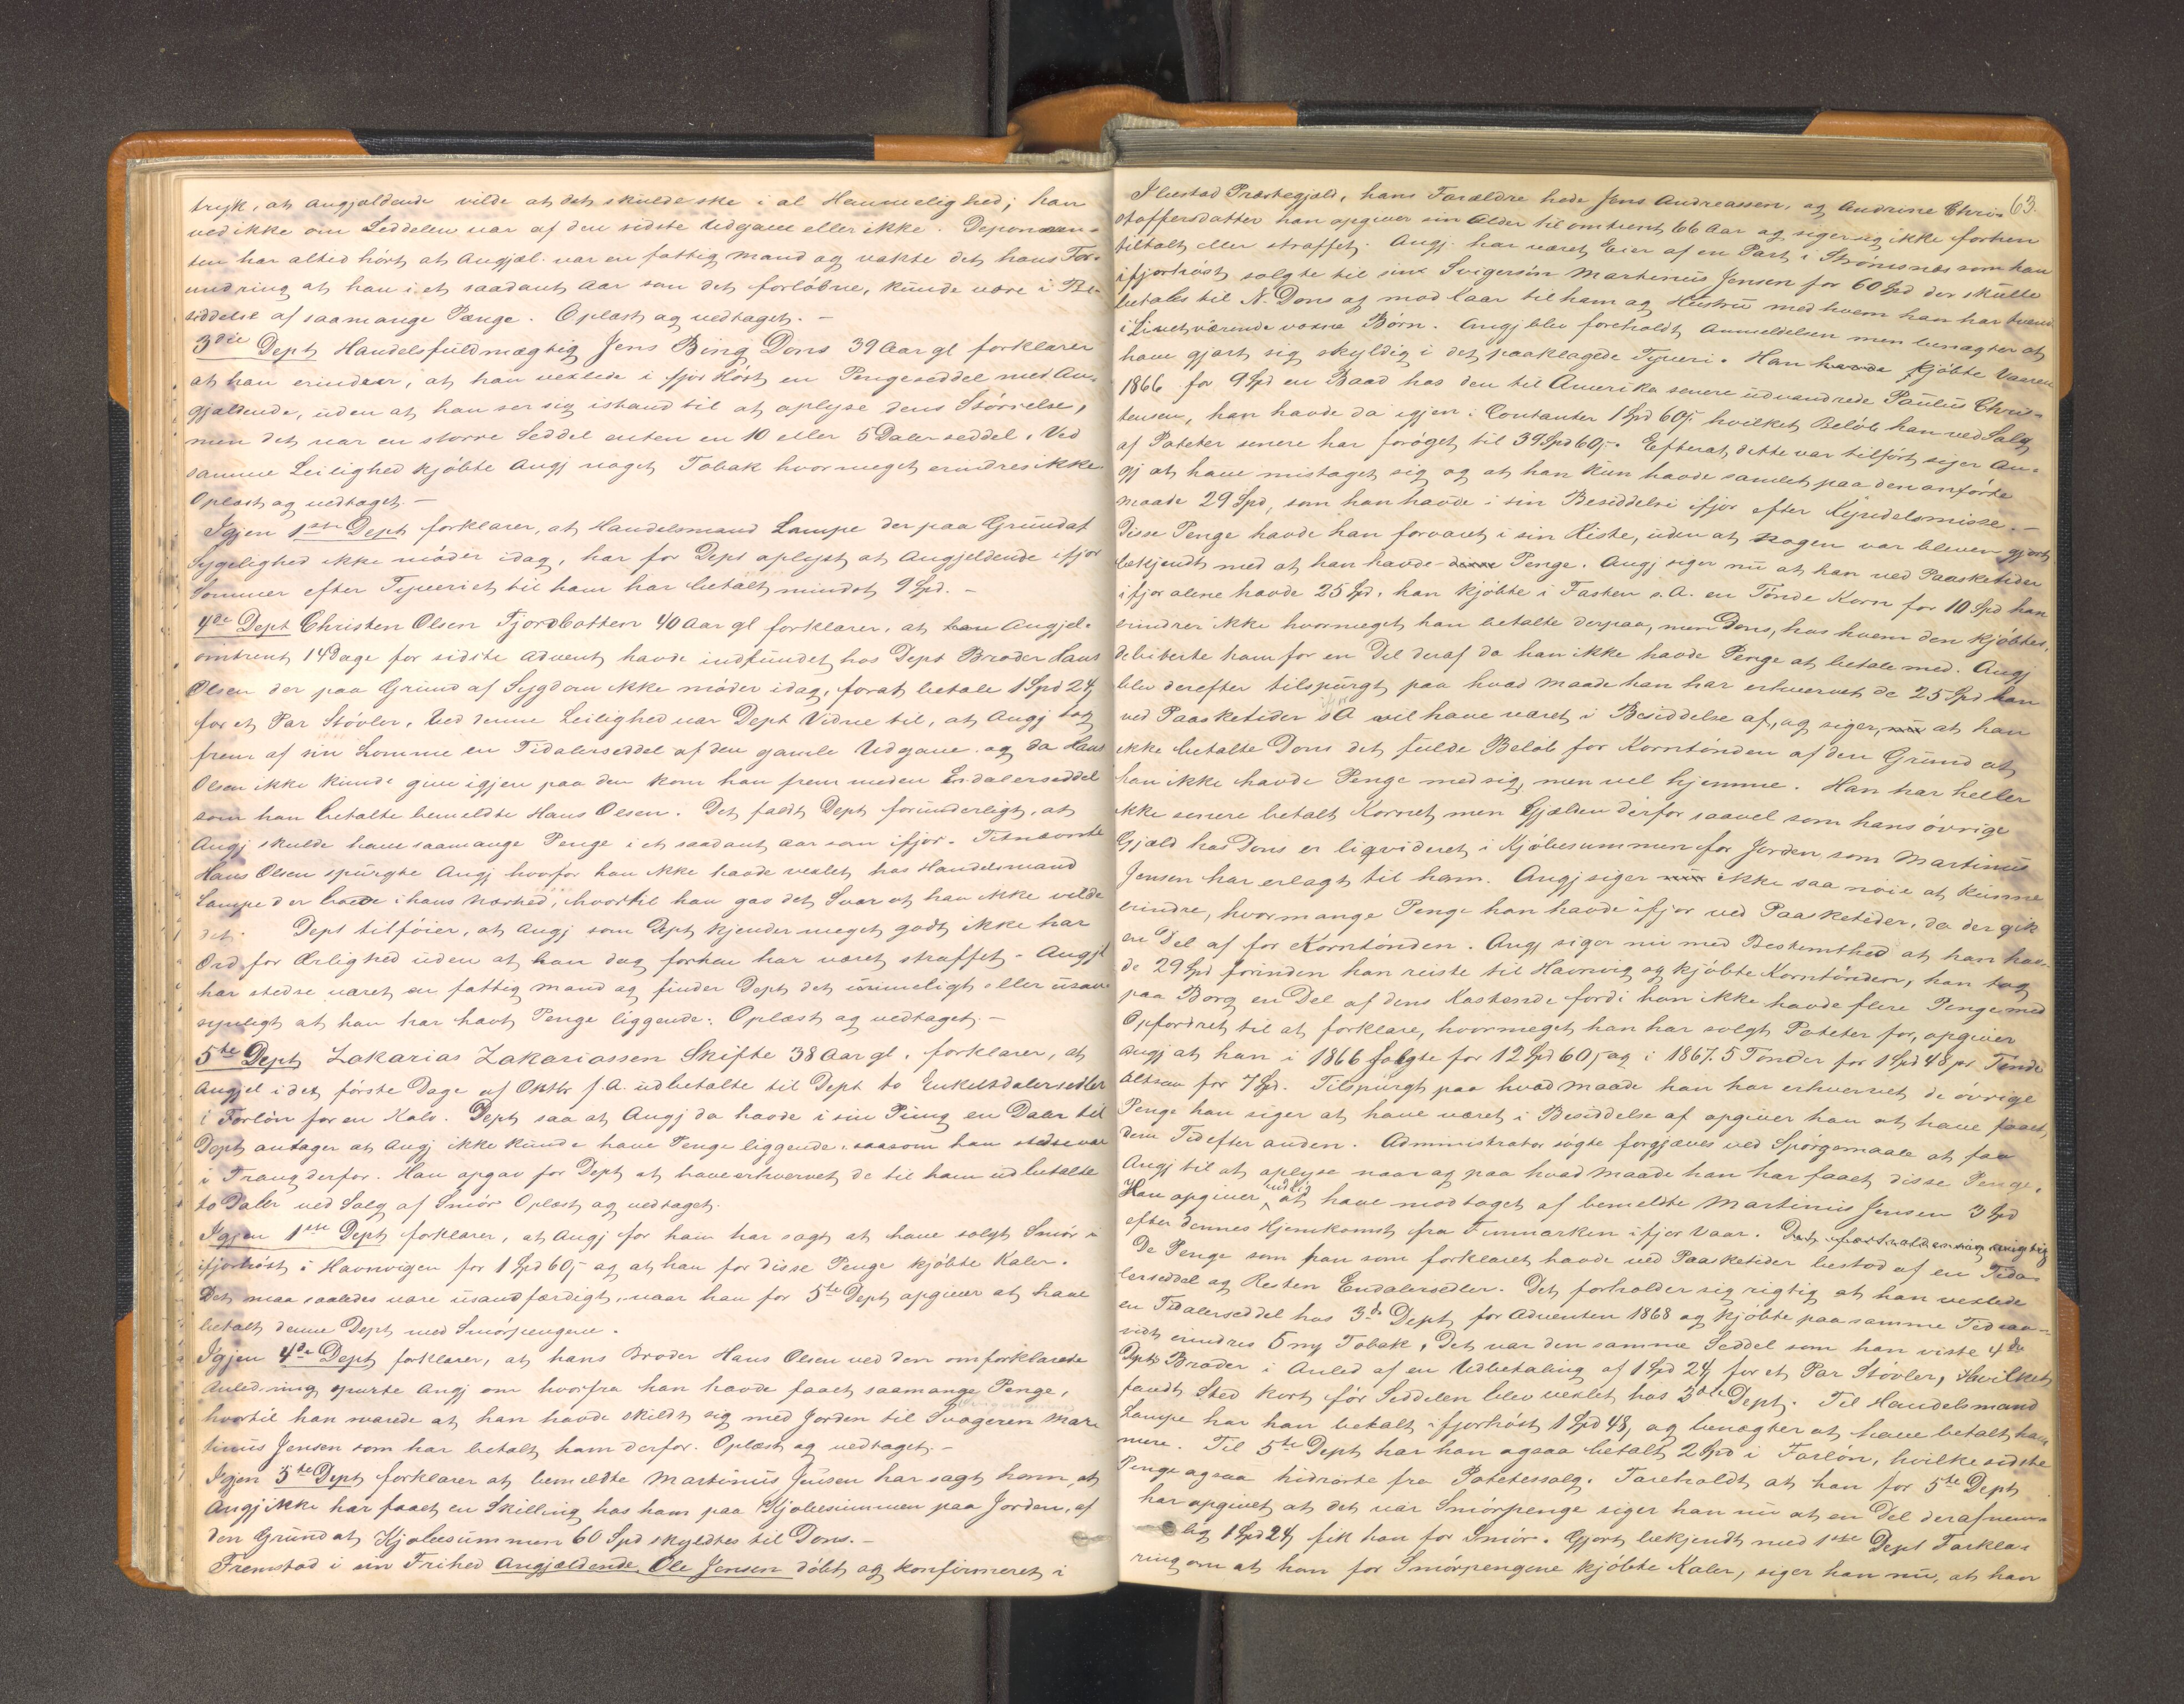 tryk, at angjældende vilde at det skulde ske i al Hemmelighed; han
ved ikke om Seddelen var af den sidste Udgave eller ikke. Deponen-
ten har altid hørt at Angjæl. var en fattig Mand og vakte det hans For-
undring at han i et saadant Aar som det forløbne, kunde være i Be-
siddelse af saamange Penge. Oplæst og vedtaget. —
3die Dept Handelsfuldmægtig Jens Bing Dons 39 Aar gl forklarer
at han erindrer, at han vexlede i fjor Høst en Pengeseddel med An-
gjældende, uden at han ser sig istand til at oplyse dens Størrelse,
men det var en større Seddel enten en 10 eller 5 Daler seddel. Ved
samme Leilighed kjøbte Angj noget Tobak hvormeget erindres ikke
Oplæst og vedtaget. —
Igjen 1ste Dept forklarer, at Handelsmand Lampe der paa Grund af
Sygelighed ikke møder idag, har for Dept oplyst at Angjeldende ifjor
Sommer efter Tyveriet til ham har betalt mindst 9 Spd. —
4de Dept Christen Olsen Fjordbotten 40 Aar gl forklarer, at han Angjel.
omtrent 14 Dage før sidste Advent havde indfundet hos Dept Broder Hans
Olsen der paa Grund af Sygdom ikke møder idag, forat betale 1 Spd 24
for et Par Støvler, Ved denne Leilighed var Dept Vidne til, at Angj tog
frem af sin Lomme en Tidalerseddel af den gamle Udgave og da Hans
Olsen ikke kunde give igjen paa den kom han frem med en Endalerseddel
som han betalte bemeldte Hans Olsen. Det faldt Dept forunderligt, at
Angj skulde have saamange Penge i et saadant Aar som ifjor. Fitnævnte
Hans Olsen spurgte Angj hvorfor han ikke havde vexlet hos Handelsmand
Lampe der boede i hans Nærhed, hvortil han gav det Svar at han ikke vilde
det. Dept tilføier, at Angj som Dept kjender meget godt ikke har
Ord for Ærlighed uden at han dog forhen har været straffet. Angjl
har stedse været en fattig Mand og finder Dept det urimeligt eller usand
synligt at han har havt Penge liggende. Oplæst og vedtaget. —
5te Dept Zakarias Zakariassen Skifte 38 Aar gl. forklarer, at
Angjel i de første Dage af Oktbr f.A. udbetalte til Dept to Enkeltdalersedler
i Forløn for en Kalv. Dept saa at Angj da havde i sin Pung en Daler til
Dept antager at Angj ikke kunde have Penge liggende, saasom han stedse var
i Trang derfor. Han opgav for Dept at have erhvervet de til ham udbetalte
to Daler ved Salg af Smør Oplæst og vedtaget.
Igjen 1ste Dept forklarer, at Angj for ham har sagt at have solgt Smør
ifjorhøst i Havnvigen for 1 Spd 60 og at han for disse Penge kjøbte Kaler.
Det maa saaledes være usandfærdigt, naar han for 5te Dept opgiver at have
betalt denne Dept med Smørpengene.
Igjen 4de Dept forklarer, at hans Broder Hans Olsen ved den omforklarede
Anledning spurte Angj om hvorfra han havde faaet saamange Penge,
hvortil han svarede at han havde skildt sig med Jorden til Svogeren Mar
tinus Jensen som har betalt ham derfor. Oplæst og vedtaget. —
Igjen 5te Dept forklarer at bemeldte Martinus Jensen har sagt ham, at
Angj ikke har faaet en Skilling hos ham paa Kjøbesummen paa Jorden, af
den Grund at Kjøbesummen 60 Spd skyldtes til Dons. —
Fremstod i sin Frihed Angjældende Ole Jensen døbt og konfirmeret i
63.
Ibestad Præstegjæld, hans Forældre hede Jens Andreassen, og Andrine Chris
stoffersdatter han opgiver sin Alder til omtrent 66 Aar og siger sig ikke forhen
tiltalt eller straffet. Angj. har været Eier af en Part i Strømsnæs som han
ifjorhøst solgte til sin Svigersøn Martinus Jensen for 60 Spd der skulle
betales til N. Dons og mod Kaar til ham og Hustru med hvem han har
i Livet værende voxne Børn. Angj blev foreholdt Anmeldelsen men benægter at
have gjort sig skyldig i det paaklagede Tyveri. Han havde kjøbte Vaaren
1866 for 9 Spd en Baad hos den til Amerika senere udvandrede Paulus Chris-
tensen, han havde da igjen i Contanter 1 Spd 60 hvilket Beløb han ved Salg
af Poteter senere har forøget til 39 Spd 60. Efterat dette var tilført siger An-
gj at have mistaget sig og at han kun havde samlet paa den anførte
Maade 29 Spd, som han havde i sin Besiddelse ifjor efter Kyndelsmisse. —
Disse Penge havde han forvaret i sin Kiste, uden at Nogen var bleven gjort
bekjendt med at han havde disse Penge. Angj siger nu at han ved Paasketider
ifjor alene havde 25 Spd. han kjøbte i Fasten s. A. en Tønde Korn for 10 Spd han
erindrer ikke hvormeget han betalte derpaa, men Dons, hos hvem den kjøbtes,
debiterte ham for en Del deraf da han ikke havde Penge at betale med. Angj
blev derefter tilspurgt paa hvad Maade han har erhvervet de 25 Spd han
ved Paasketider s A vil have været i Besiddelse af, og siger, nu at han
ikke betalte Dons det fulde Beløb for Korntønden af den Grund at
han ikke havde Penge med sig, men vel hjemme. Han har heller
ikke senere betalt Kornet men Gjælden derfor saavel som hans øvrige
Gjæld hos Dons er liqvideret i Kjøbesummen for Jorden som Martinus
Jensen har erlagt til ham. Angj siger nu ikke saa nøie at kunne
erindre, hvormange Penge han havde ifjor ved Paasketider, da der gik
en Del af for Korntønden. Angj siger nu med Bestemthed at han hav-
de 29 Spd forinden han reiste til Havnvig og kjøbte Korntønden, han tog
paa Borg en Del af dens Kostende fordi han ikke havde flere Penge med
Opfordret til at forklare, hvormeget han har solgt Poteter for, opgiver
Angj at han i 1866 solgte for 12 Spd 60 og i 1867. 5 Tønder for 1 Spd 48 pr Tønde
altsaa for 7 Spd. Tilspurgt paa hvad Maade han har erhvervet de øvrige
Penge han siger at have været i Besiddelse af opgiver han at have faaet
dem Tid efter anden. Administrator søgte forgjæves ved Spørgsmaale at faa
Angj til at oplyse naar og paa hvad Maade han har faaet disse Penge.
Han opgiver endlig at have modtaget af bemeldte Martinus Jensen 3 Spd
efter dennes Hjemkomst fra Finmarken ifjor Vaar. Det forholder sig rigtig
De Penge som han som forklaret havde ved Paasketider bestod af en Tida-
lerseddel og Resten Endalersedler. Det forholder sig rigtig at han vexlede
en Tidalerseddel hos 3die Dept før Adventen 1868 og kjøbte paa samme Tid saa-
vidt erindres 5 mg Tobak, Det var den samme Seddel som han viste 4de
Depts Broder i Anled af en Udbetaling af 1 Spd 24 for et Par Støvler, Hvilket
fandt Sted kort før Seddelen blev vexlet hos 3die Dept. Til Handelsmand
Lampe har han betalt ifjorhøst 1 Spd 48, og benægter at have betalt ham
mere. Til 5te Dept har han ogsaa betalt 2 Spd i Forløn, hvilke sidste
Penge ogsaa hidrørte fra Potetessalg. Foreholdt at han for 5te Dept
har opgivet at det var Smørpenge siger han nu at en Del deraf nem-
lig 1 Spd 24 fik han for Smør. Gjort bekjendt med 1ste Dept Forkla-
ring om at han for Smørpengene kjøbte Kaler, siger han nu, at han